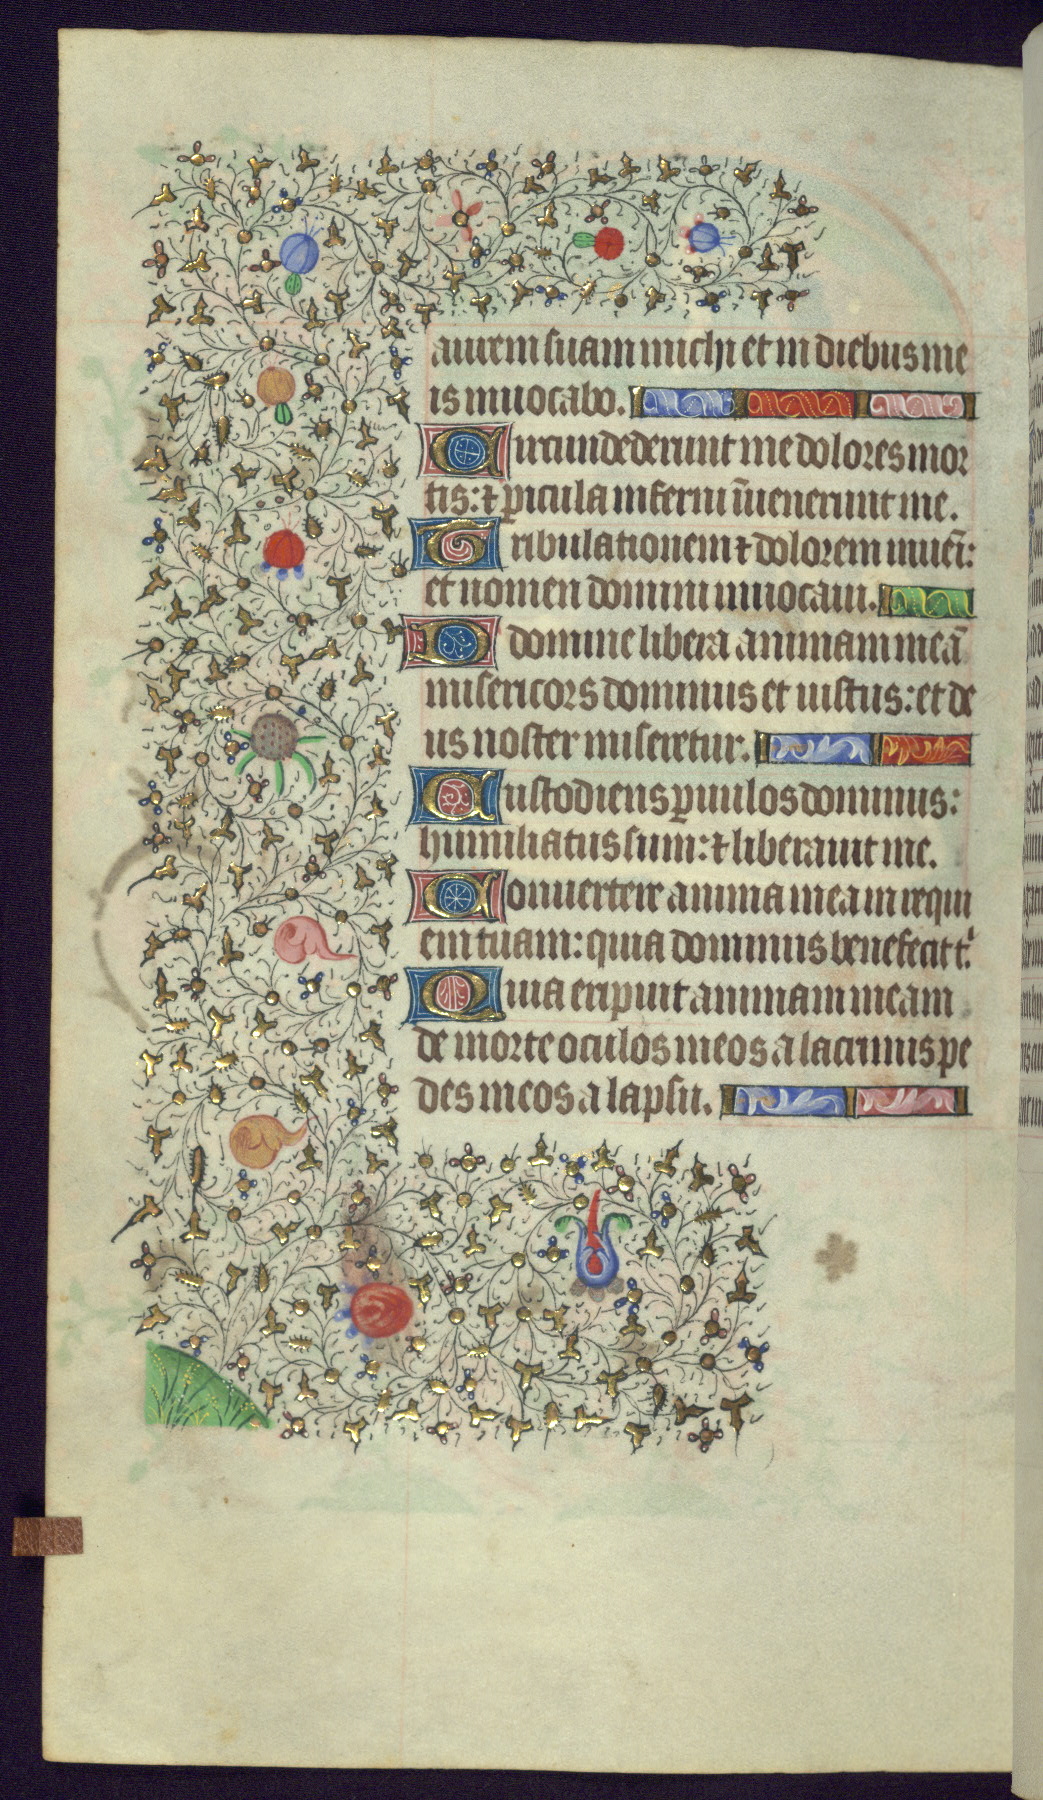 aurem suam michi et in diebus me
is inuocabo.
Circundederunt me dolores mor
tis: ⁊ ꝑicula inferni īuenerunt me.
Tribulationem ⁊ dolorem inueī:
et nomen domini inuocaui.
O domine libera animam meā
misericors dominus et iustus: et de
us noster miseretur.
Custodiens ꝑuulos dominus:
humiliatus sum: ⁊ liberauit me.
Conuertere anima mea in requi
em tuam: quia dominus benefecit t.ͥ
Quia eripuit animam meam
de morte oculos meos a lacrimis pe
des meos a lapsu.